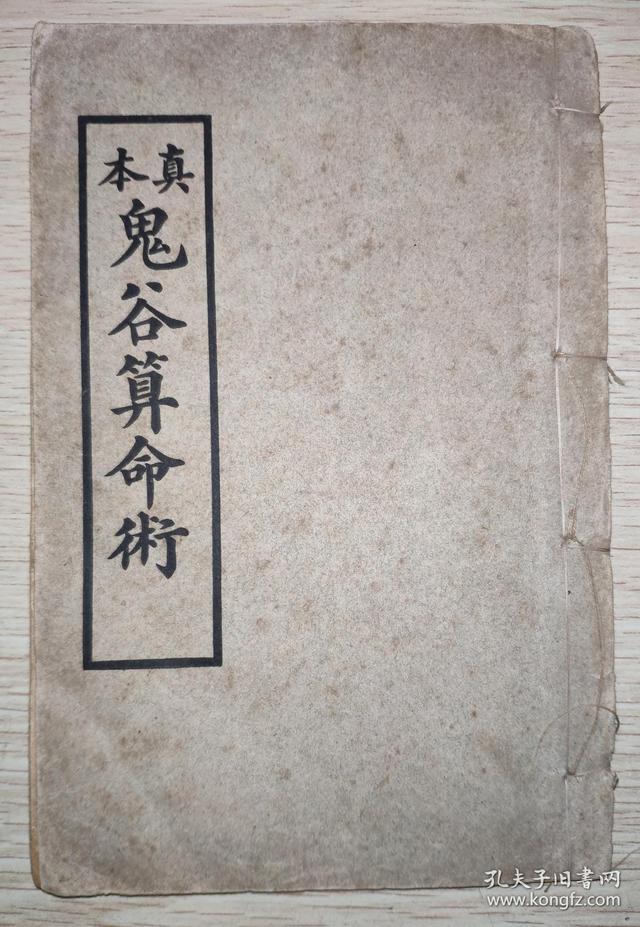 真本
鬼谷算命術
孔夫子旧书网
www.kongfz.com